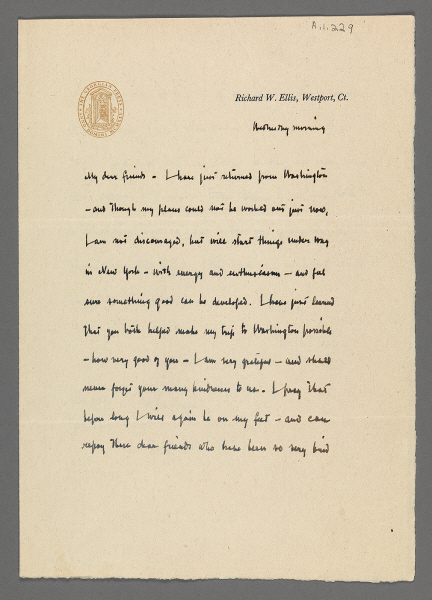 A.1.229
THE GEORGIAN PRESS
Richard W. Ellis, Westport, Ct.
Wednesday morning
My dear friends - I have just returned from Washington
- and though my plans could not be worked out just now,
I am not discouraged, but will start things under way
in New York - with energy and enthusiasm - and feel
sure something good can be developed. I have just learned
that you both helped make my trip to Washington possible
- how very good of you - I am very grateful - and shall
never forget your many kindnesses to us - I pray that
before long I will again be on my feet - and can
repay these dear friends who have been so very kind